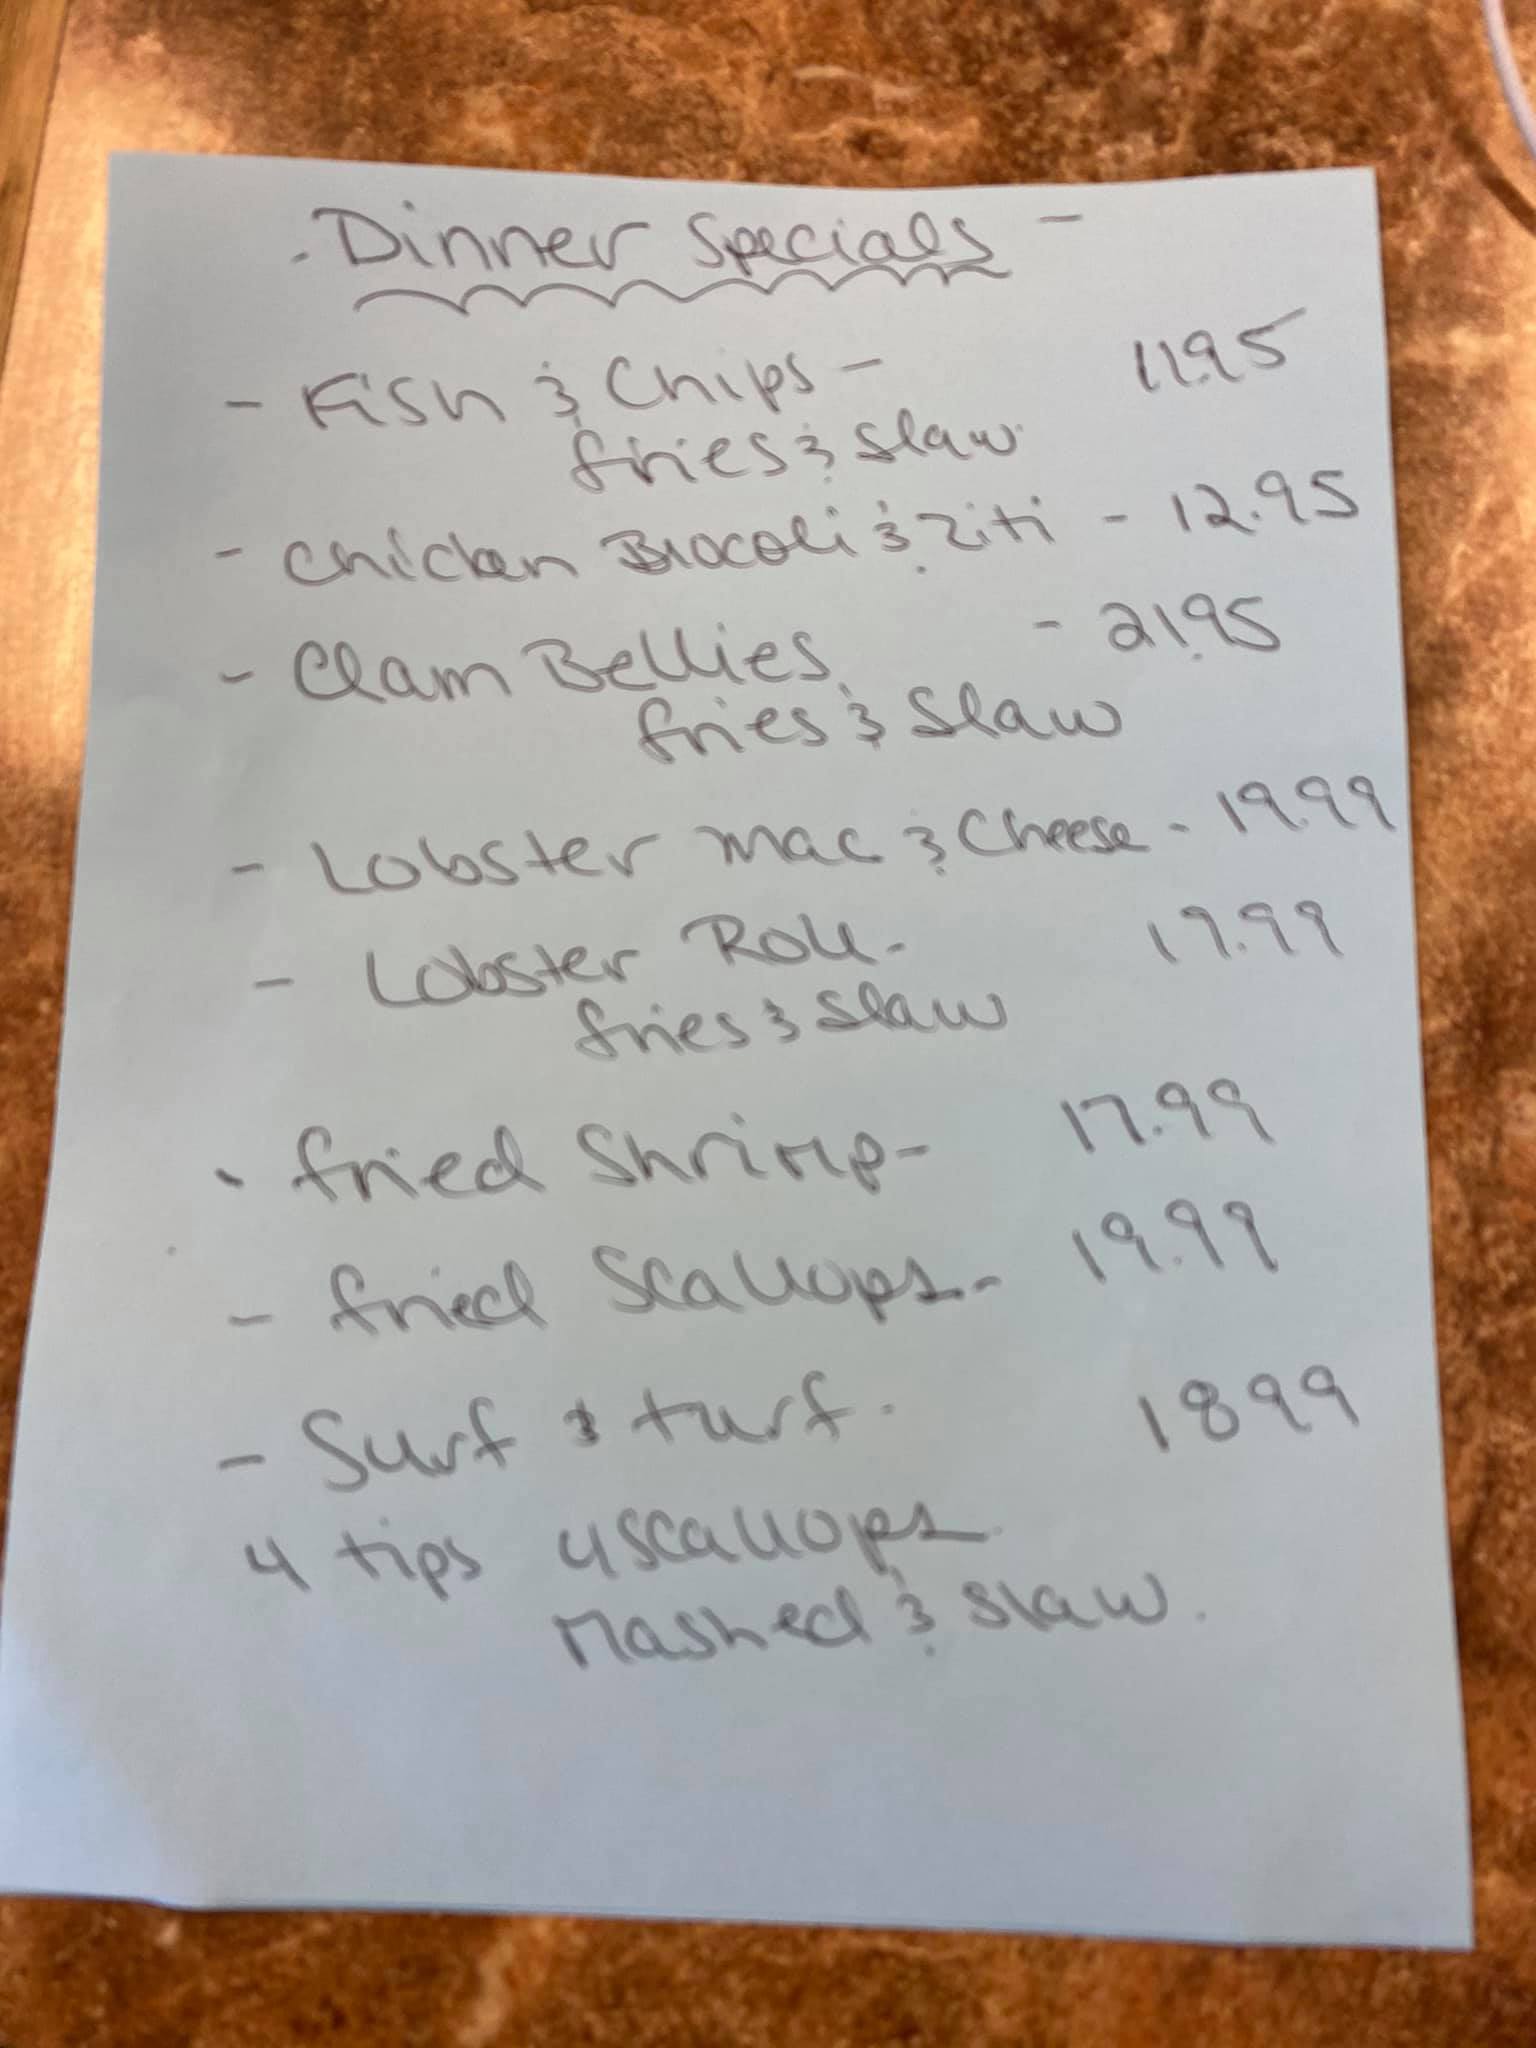 . Dinner Specials -
- Fish & Chips - 11.95
fries & slaw
- Chicken Brocoli & Ziti - 12.95
- Clam Bellies - 21.95
fries & slaw
- Lobster Mac & Cheese - 19.99
- Lobster Roll - 19.99
fries & slaw
- fried Shrimp - 17.99
- fried Scallops - 19.99
- Surf & turf. 1899
4 tips 4 scallops
Mashed & slaw.